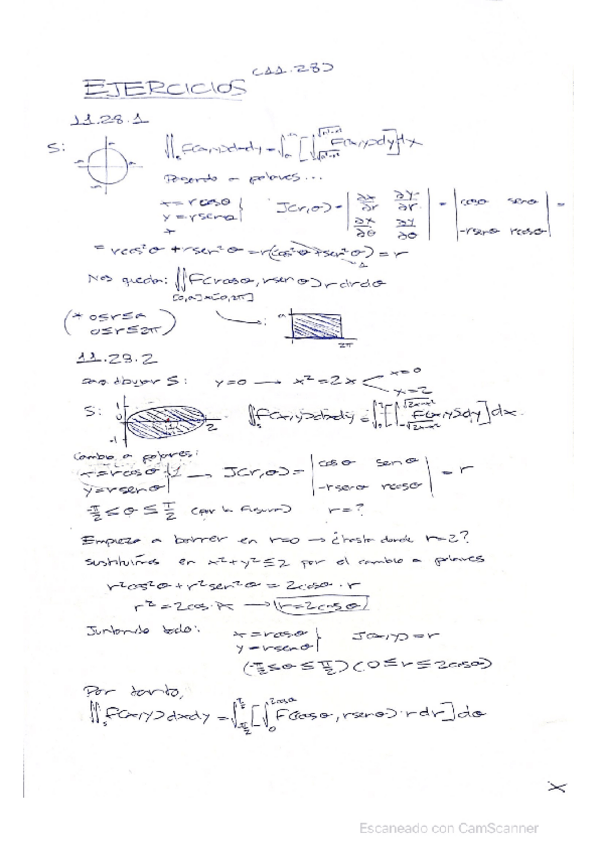 EJERCICIOS (11.28)
11.28.1
S: ∬ₛ F(x,y)dxdy = ∫ [∫ F(x,y)dy]dx
Pasando a polares...
x = r cosθ
y = r senθ
J(r,θ) = | ∂x/∂r ∂y/∂r ; ∂x/∂θ ∂y/∂θ | = | cosθ senθ ; -r senθ r cosθ | =
= r cos²θ + r sen²θ = r(cos²θ + sen²θ) = r
1
Nos queda: ∬ F(r cosθ, r senθ) r dr dθ
[0,a]×[0,2π]
(* 0≤r≤a
0≤r≤2π)
a
2π
11.28.2
dibujar S: y=0 → x² = 2x
x=0
x=2
S: 1 0 -1 1 2 ∬ₛ F(x,y)dxdy = ∫₀² [∫ F(x,y)dy]dx.
Cambio a polares:
x = r cosθ
y = r senθ
→ J(r,θ) = | cosθ senθ ; -r senθ r cosθ | = r
-π/2 ≤ θ ≤ π/2 (por la figura) r = ?
Empieza a barrer en r=0 → ¿hasta donde r=2?
sustituimos en x²+y² ≤ 2 por el cambio a polares
r² cos²θ + r² sen²θ = 2cosθ · r
r² = 2cosθ · r → r = 2cosθ
Juntando todo: x = r cosθ
y = r senθ
J(x,y) = r
(-π/2 ≤ θ ≤ π/2) (0 ≤ r ≤ 2cosθ)
Por tanto,
∬ₛ F(x,y) dxdy = ∫ [∫₀^{2cosθ} F(cosθ, r senθ) · r dr] dθ
Escaneado con CamScanner